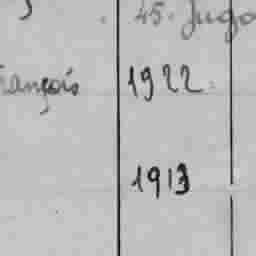 45. Jugo
rançois 1922.
1913